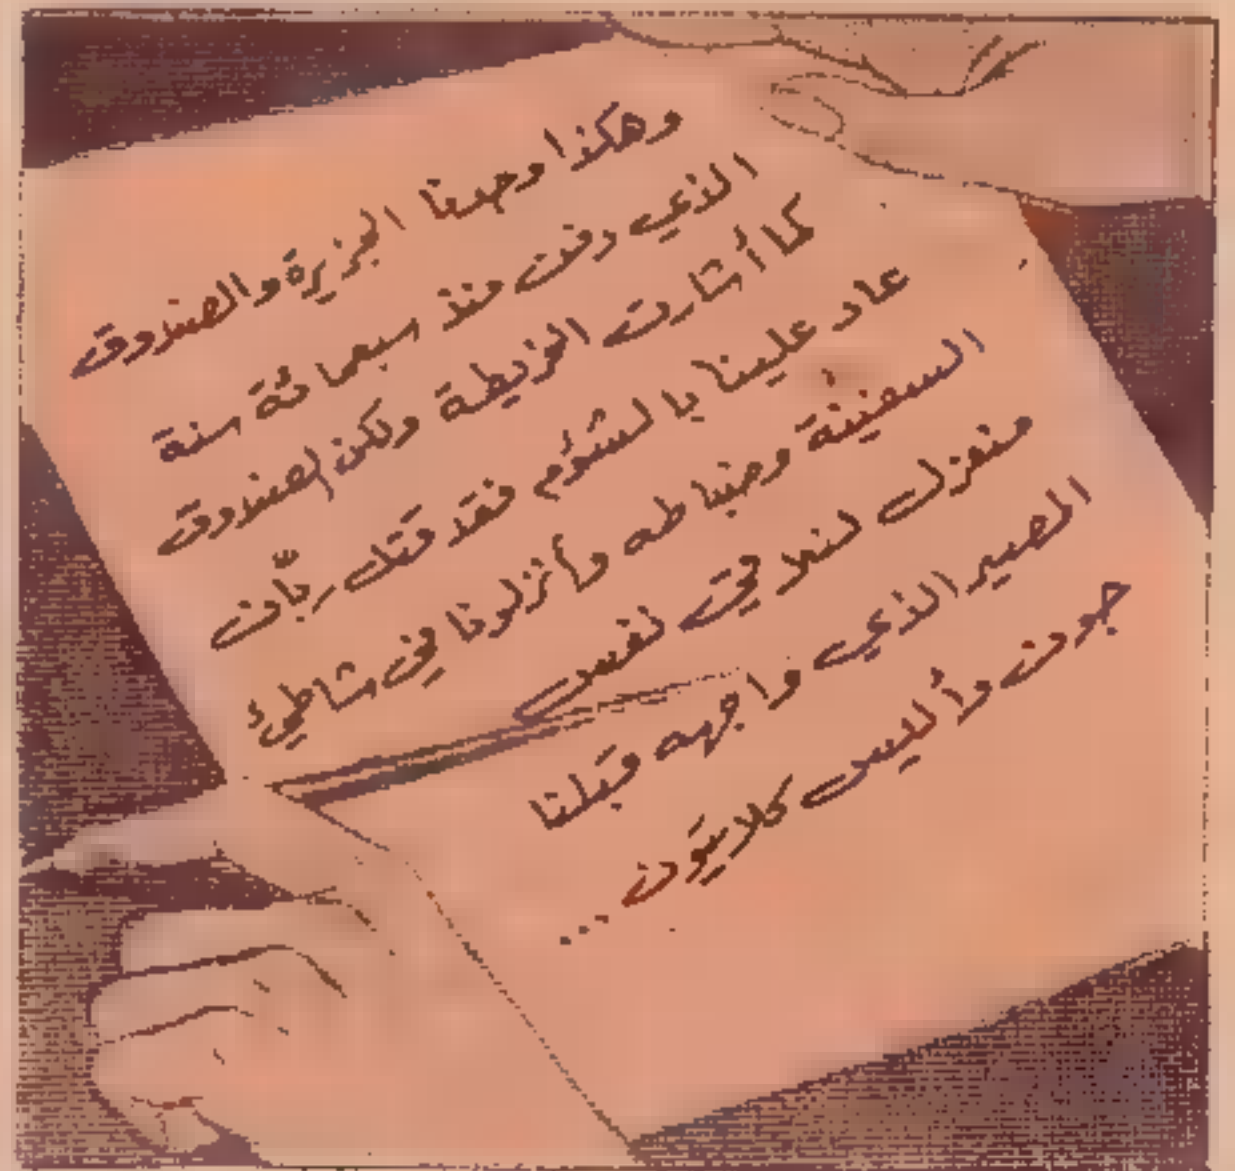 وهكذا وجدنا الجزيرة والصندوق
الذي دفن منذ سبعمائة سنة
كما أشارت الخريطة ولكن الصندوق
عاد علينا بالشؤم فقد قتل ربّان
السفينة وضباطه وأنزلونا في شاطئ
منعزل لنلاقي نفس
المصير الذي واجهه قبلنا
جون وأليس كلايتون...